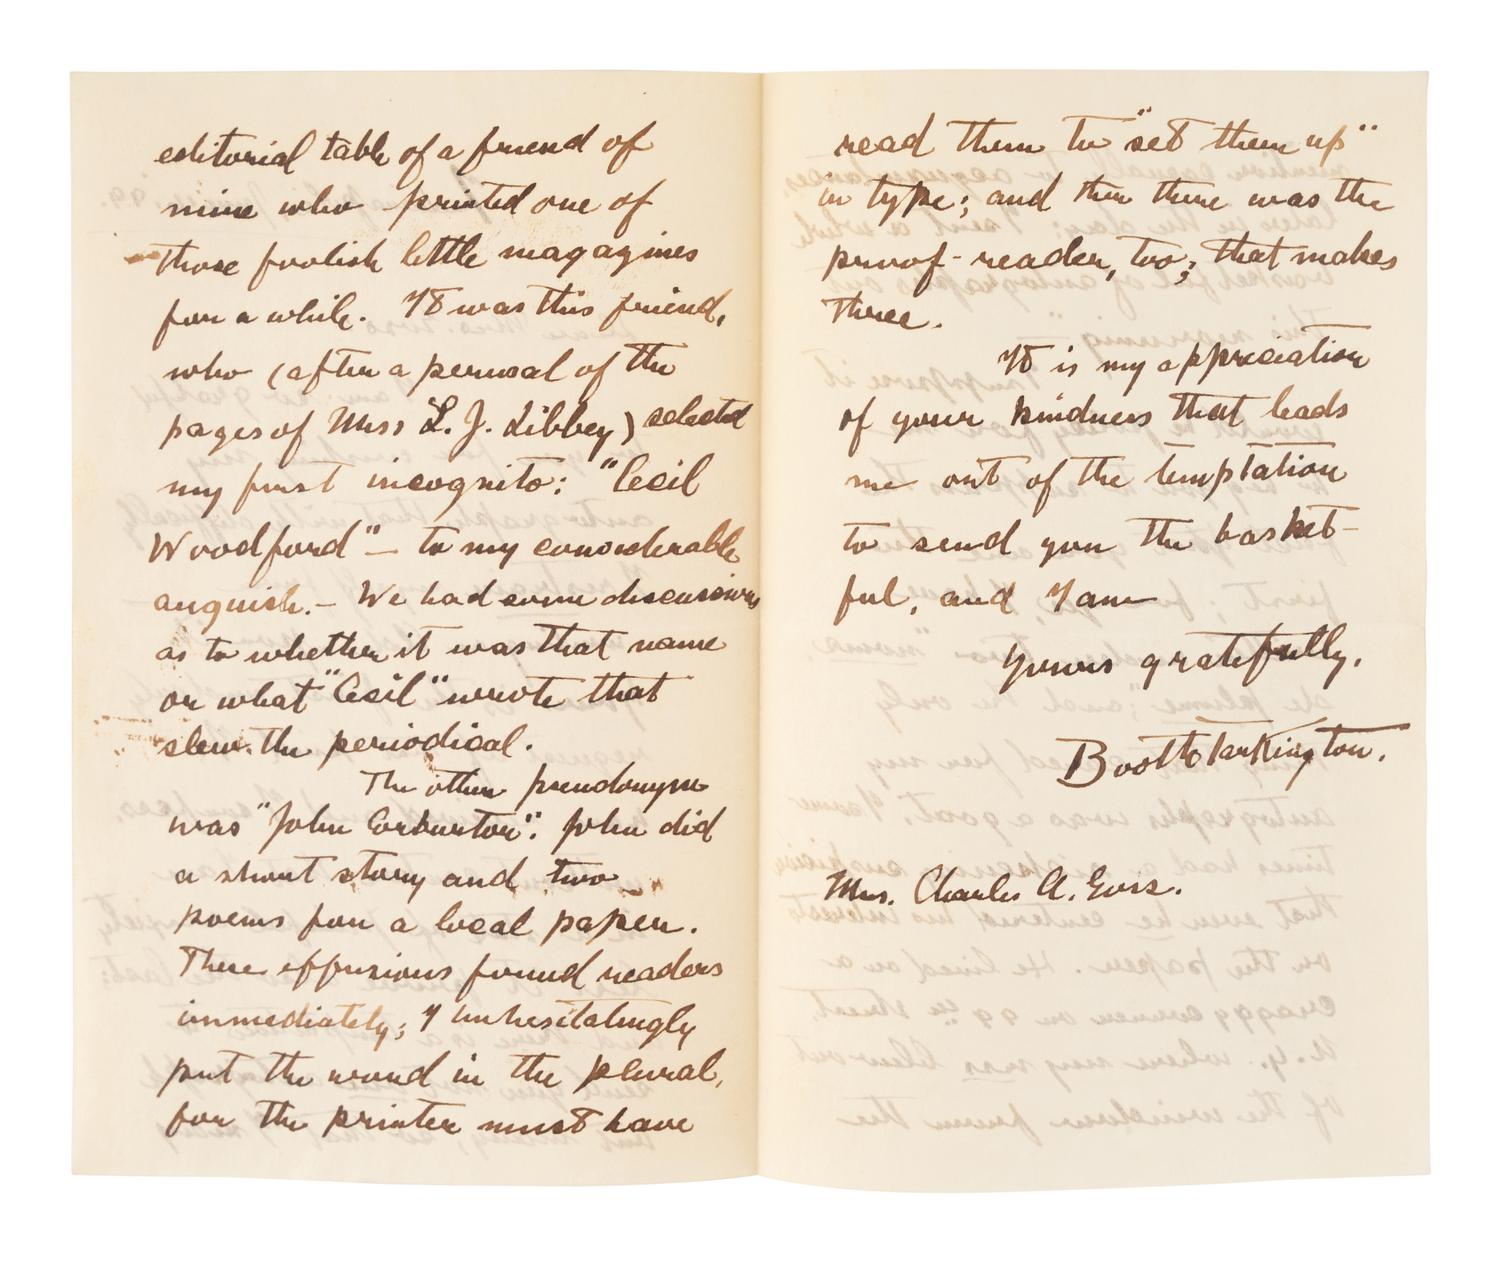 editorial table of a friend of
mine who printed one of
those foolish little magazines
for a while. It was this friend,
who (after a perusal of the
pages of Miss L. J. Libbey) selected
my first incognito: "Cecil
Woodford" — to my considerable
anguish. — We had some discussions
as to whether it was that name
or what "Cecil" wrote that
slew the periodical.
The other pseudonym
was "John Corburton". John did
a short story and two
poems for a local paper.
These effusions found readers
immediately; I unhesitatingly
put the word in the plural,
for the printer must have
read them to "set them up"
in type; and then there was the
proof-reader, too; that makes
three.
It is my appreciation
of your kindness that leads
me out of the temptation
to send you the basket-
ful, and I am
Yours gratefully,
Booth Tarkington.
Mrs. Charles A. Goss.